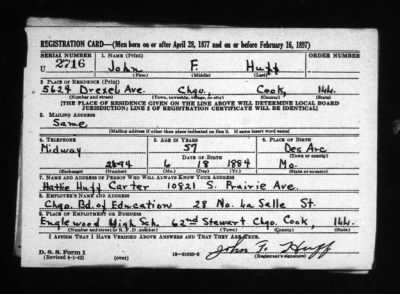 REGISTRATION CARD—(Men born on or after April 28, 1877 and on or before February 16, 1897)
SERIAL NUMBER 1. NAME (Print) ORDER NUMBER
U 2716 John F. Huff
(First) (Middle) (Last)
2. PLACE OF RESIDENCE (Print)
5624 Drexel Ave. Chgo. Cook, Ill.
(Number and street) (Town, township, village, or city) (County) (State)
[THE PLACE OF RESIDENCE GIVEN ON THE LINE ABOVE WILL DETERMINE LOCAL BOARD
JURISDICTION; LINE 2 OF REGISTRATION CERTIFICATE WILL BE IDENTICAL]
3. MAILING ADDRESS
Same
[Mailing address if other than place indicated on line 2. If same insert word same]
4. TELEPHONE 5. AGE IN YEARS 6. PLACE OF BIRTH
Midway 57 Des Arc
DATE OF BIRTH (Town or county)
2844 6 18 1884 Mo.
(Exchange) (Number) (Mo.) (Day) (Yr.) (State or country)
7. NAME AND ADDRESS OF PERSON WHO WILL ALWAYS KNOW YOUR ADDRESS
Hattie Huff Carter 10821 S. Prairie Ave.
8. EMPLOYER'S NAME AND ADDRESS
Chgo. Bd. of Education 28 No. La Salle St.
9. PLACE OF EMPLOYMENT OR BUSINESS
Englewood High Sch. 62nd Stewart Chgo. Cook, Ill.
(Number and street or R. F. D. number) (Town) (County) (State)
I AFFIRM THAT I HAVE VERIFIED ABOVE ANSWERS AND THAT THEY ARE TRUE.
D. S. S. Form 1 John F. Huff
(Revised 4-1-42) (over) (Registrant's signature)